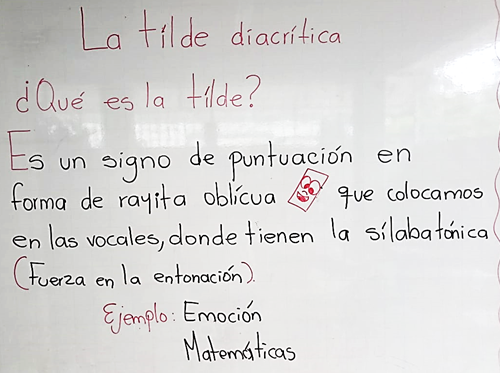 La tilde diacrítica
¿Qué es la tilde?
Es un signo de puntuación en
forma de rayita oblícua que colocamos
en las vocales, donde tienen la sílaba tónica
(Fuerza en la entonación).
Ejemplo: Emoción
Matemáticas